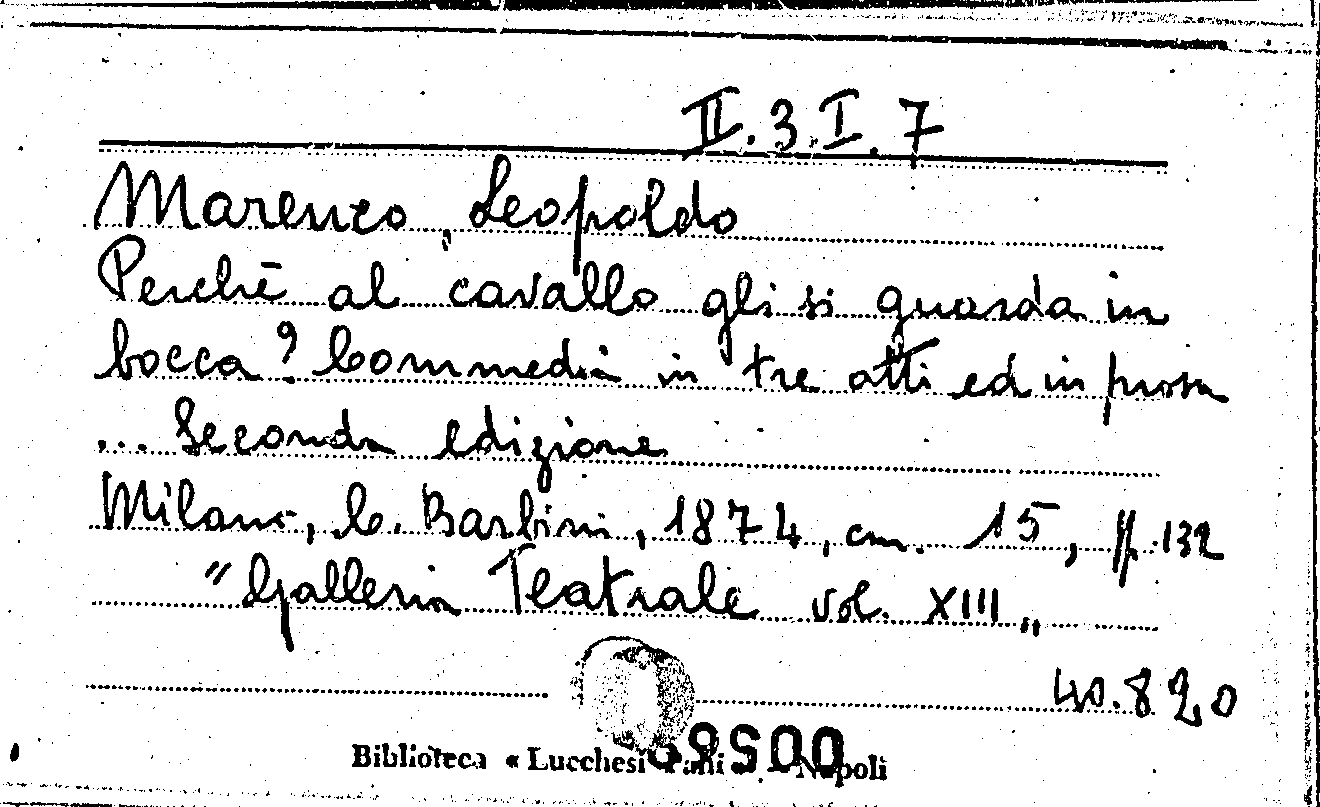 II.3.I.7
Marenco, Leopoldo
Perchè al cavallo gli si guarda in
bocca? Commedia in tre atti ed in prosa
... Seconda edizione
Milano, C. Barbini, 1874, cm. 15, pp. 132
"Galleria Teatrale vol. XIII„
40.820
Biblioteca « Lucchesi Palli » - Napoli